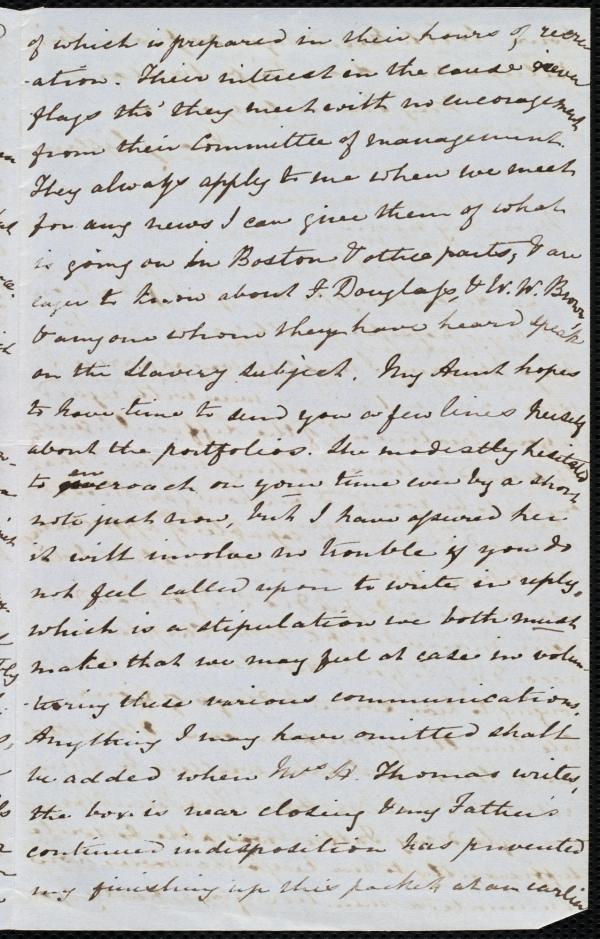 of which is prepared in their hours of recre
-ation. Their interest in the cause never
flags tho' they meet with no encouragement
from their Committee of management.
They always apply to me when we meet
for any news I can give them of what
is going on in Boston & other parts, & are
eager to know about F. Douglass, & W. W. Brown
& anyone whom they have heard speak
on the Slavery subject. My Aunt hopes
to have time to send you a few lines herself
about the portfolios. She modestly hesitated
to encroach on your time even by a short
note just now, but I have assured her
it will involve no trouble if you do
not feel called upon to write in reply,
which is a stipulation we both must
make that we may feel at ease in volun
-teering these various communications.
Anything I may have omitted shall
be added when Mrs H. Thomas writes,
the box is near closing & my Father's
continued indisposition has prevented
my finishing up this packet at an earlier